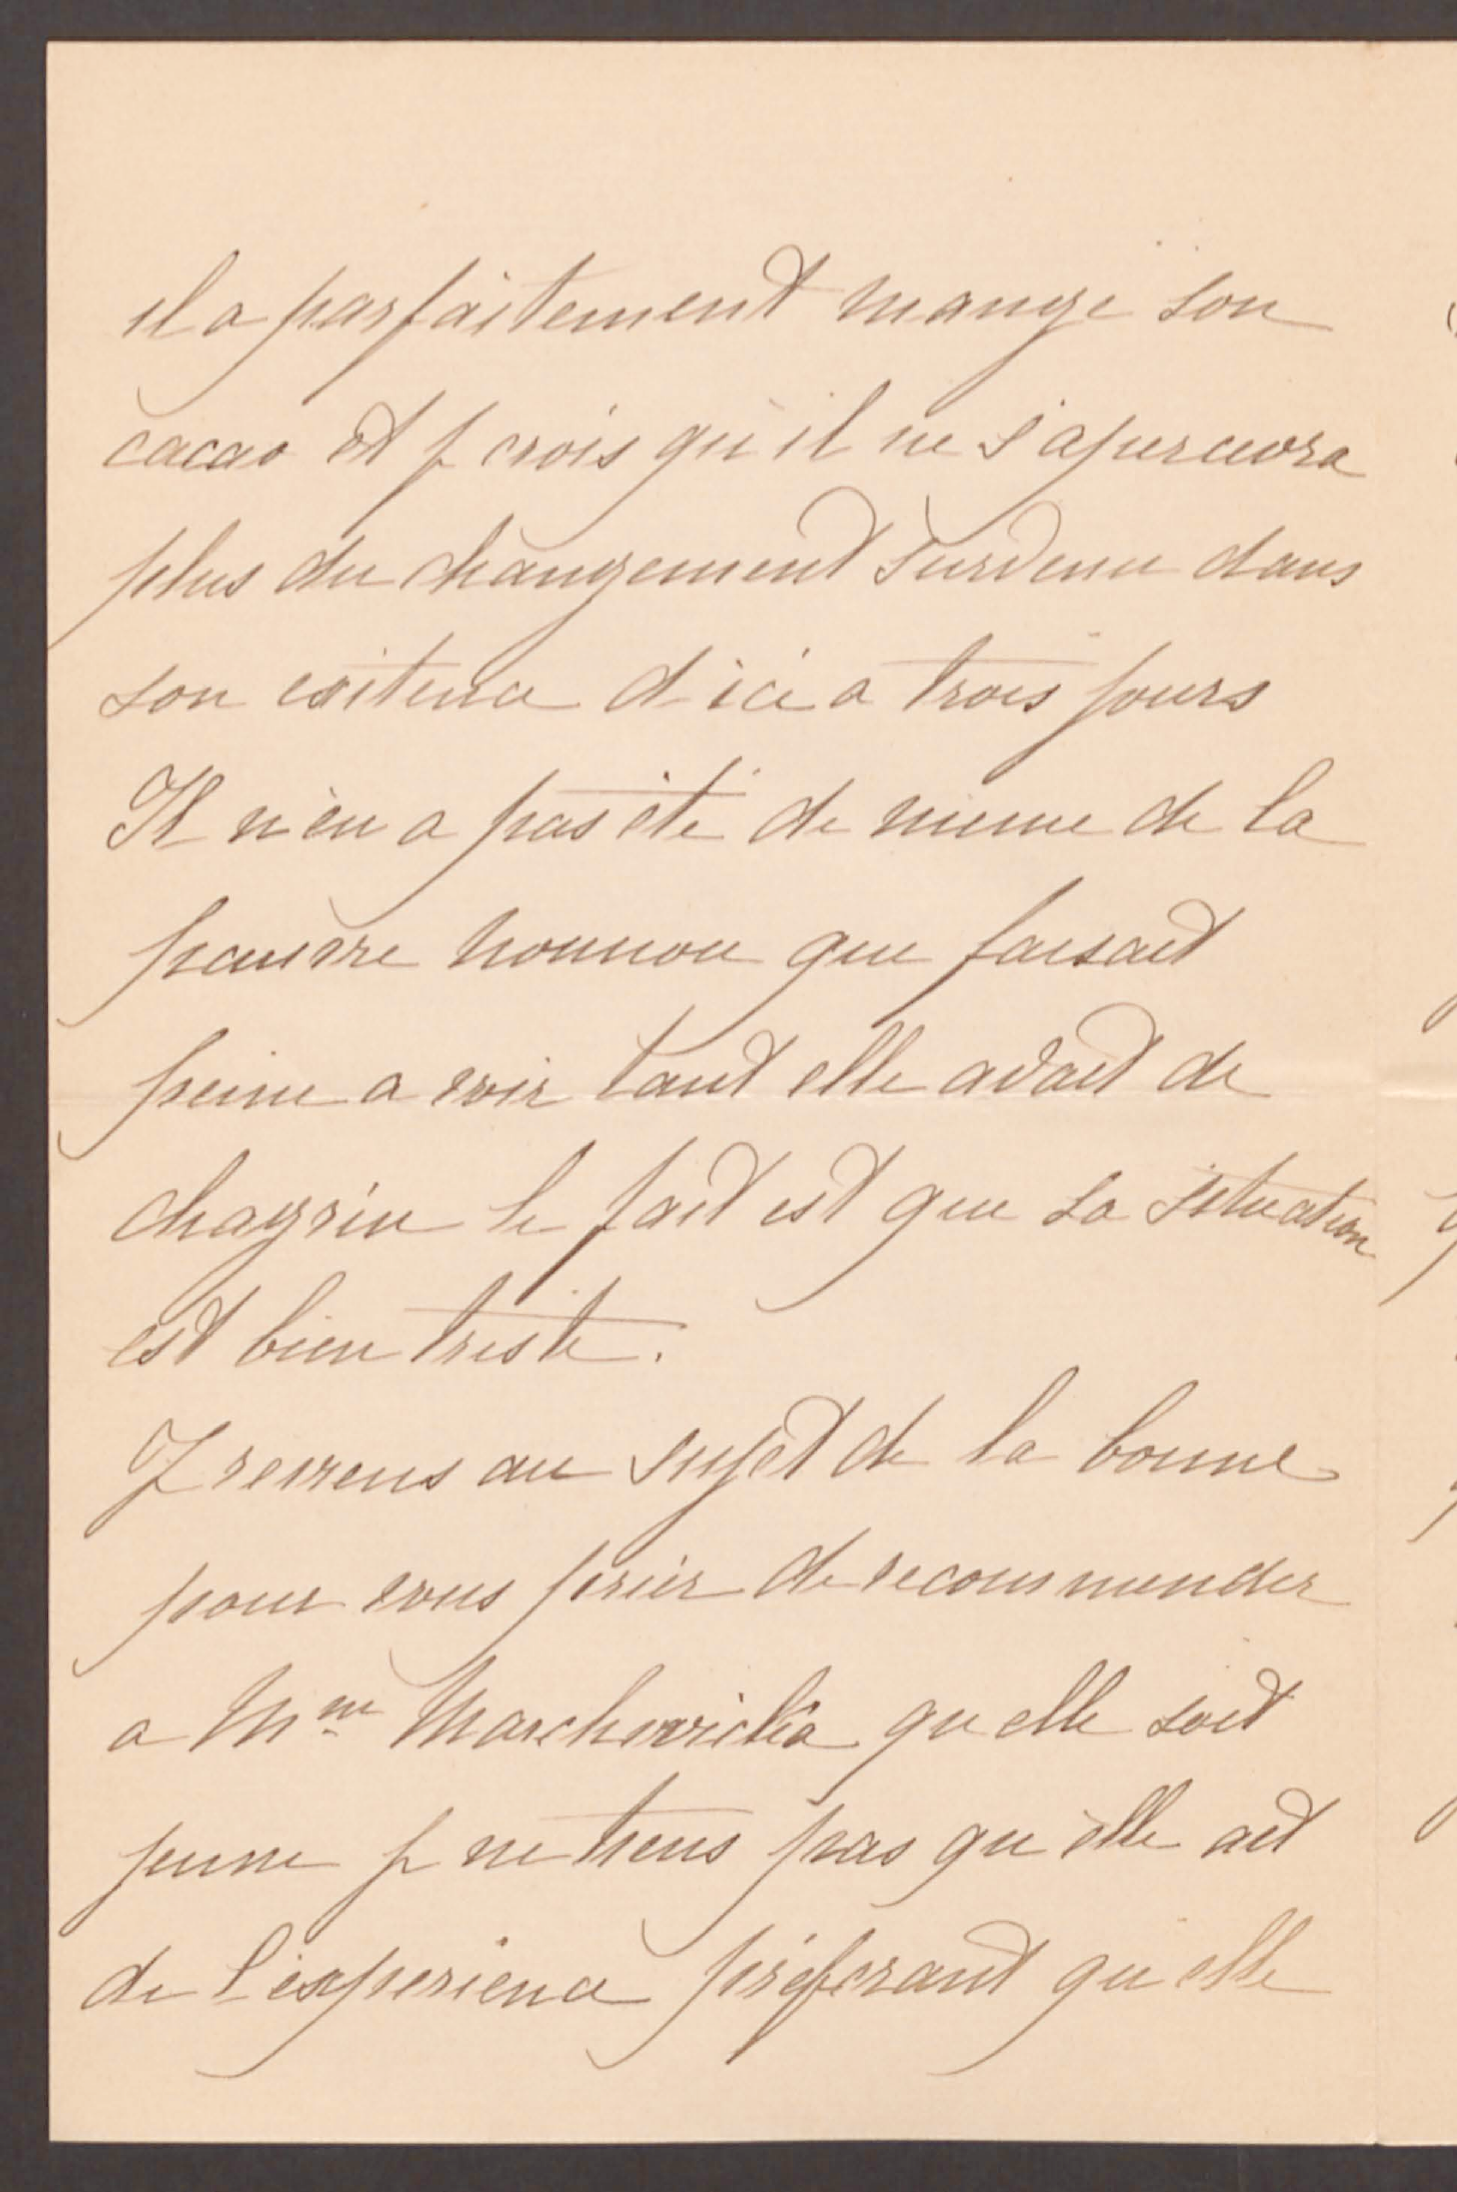 il a parfaitement mangé son
cacao et je crois qu'il ne s'apercevra
plus du changement survenu dans
son exitence d'ici a trois jours
Il n'en a pas été de meme de la
pauvre nounou que faisait
peine a voir tant elle avait de
chagrin le fait est que sa situation
est bien triste.
Je reviens au sujet de la bonne
pour vous prier de recommender
a Mme qu'elle soit
jeune je ne tiens pas qu'elle ait
de l'experience préferant qu'elle